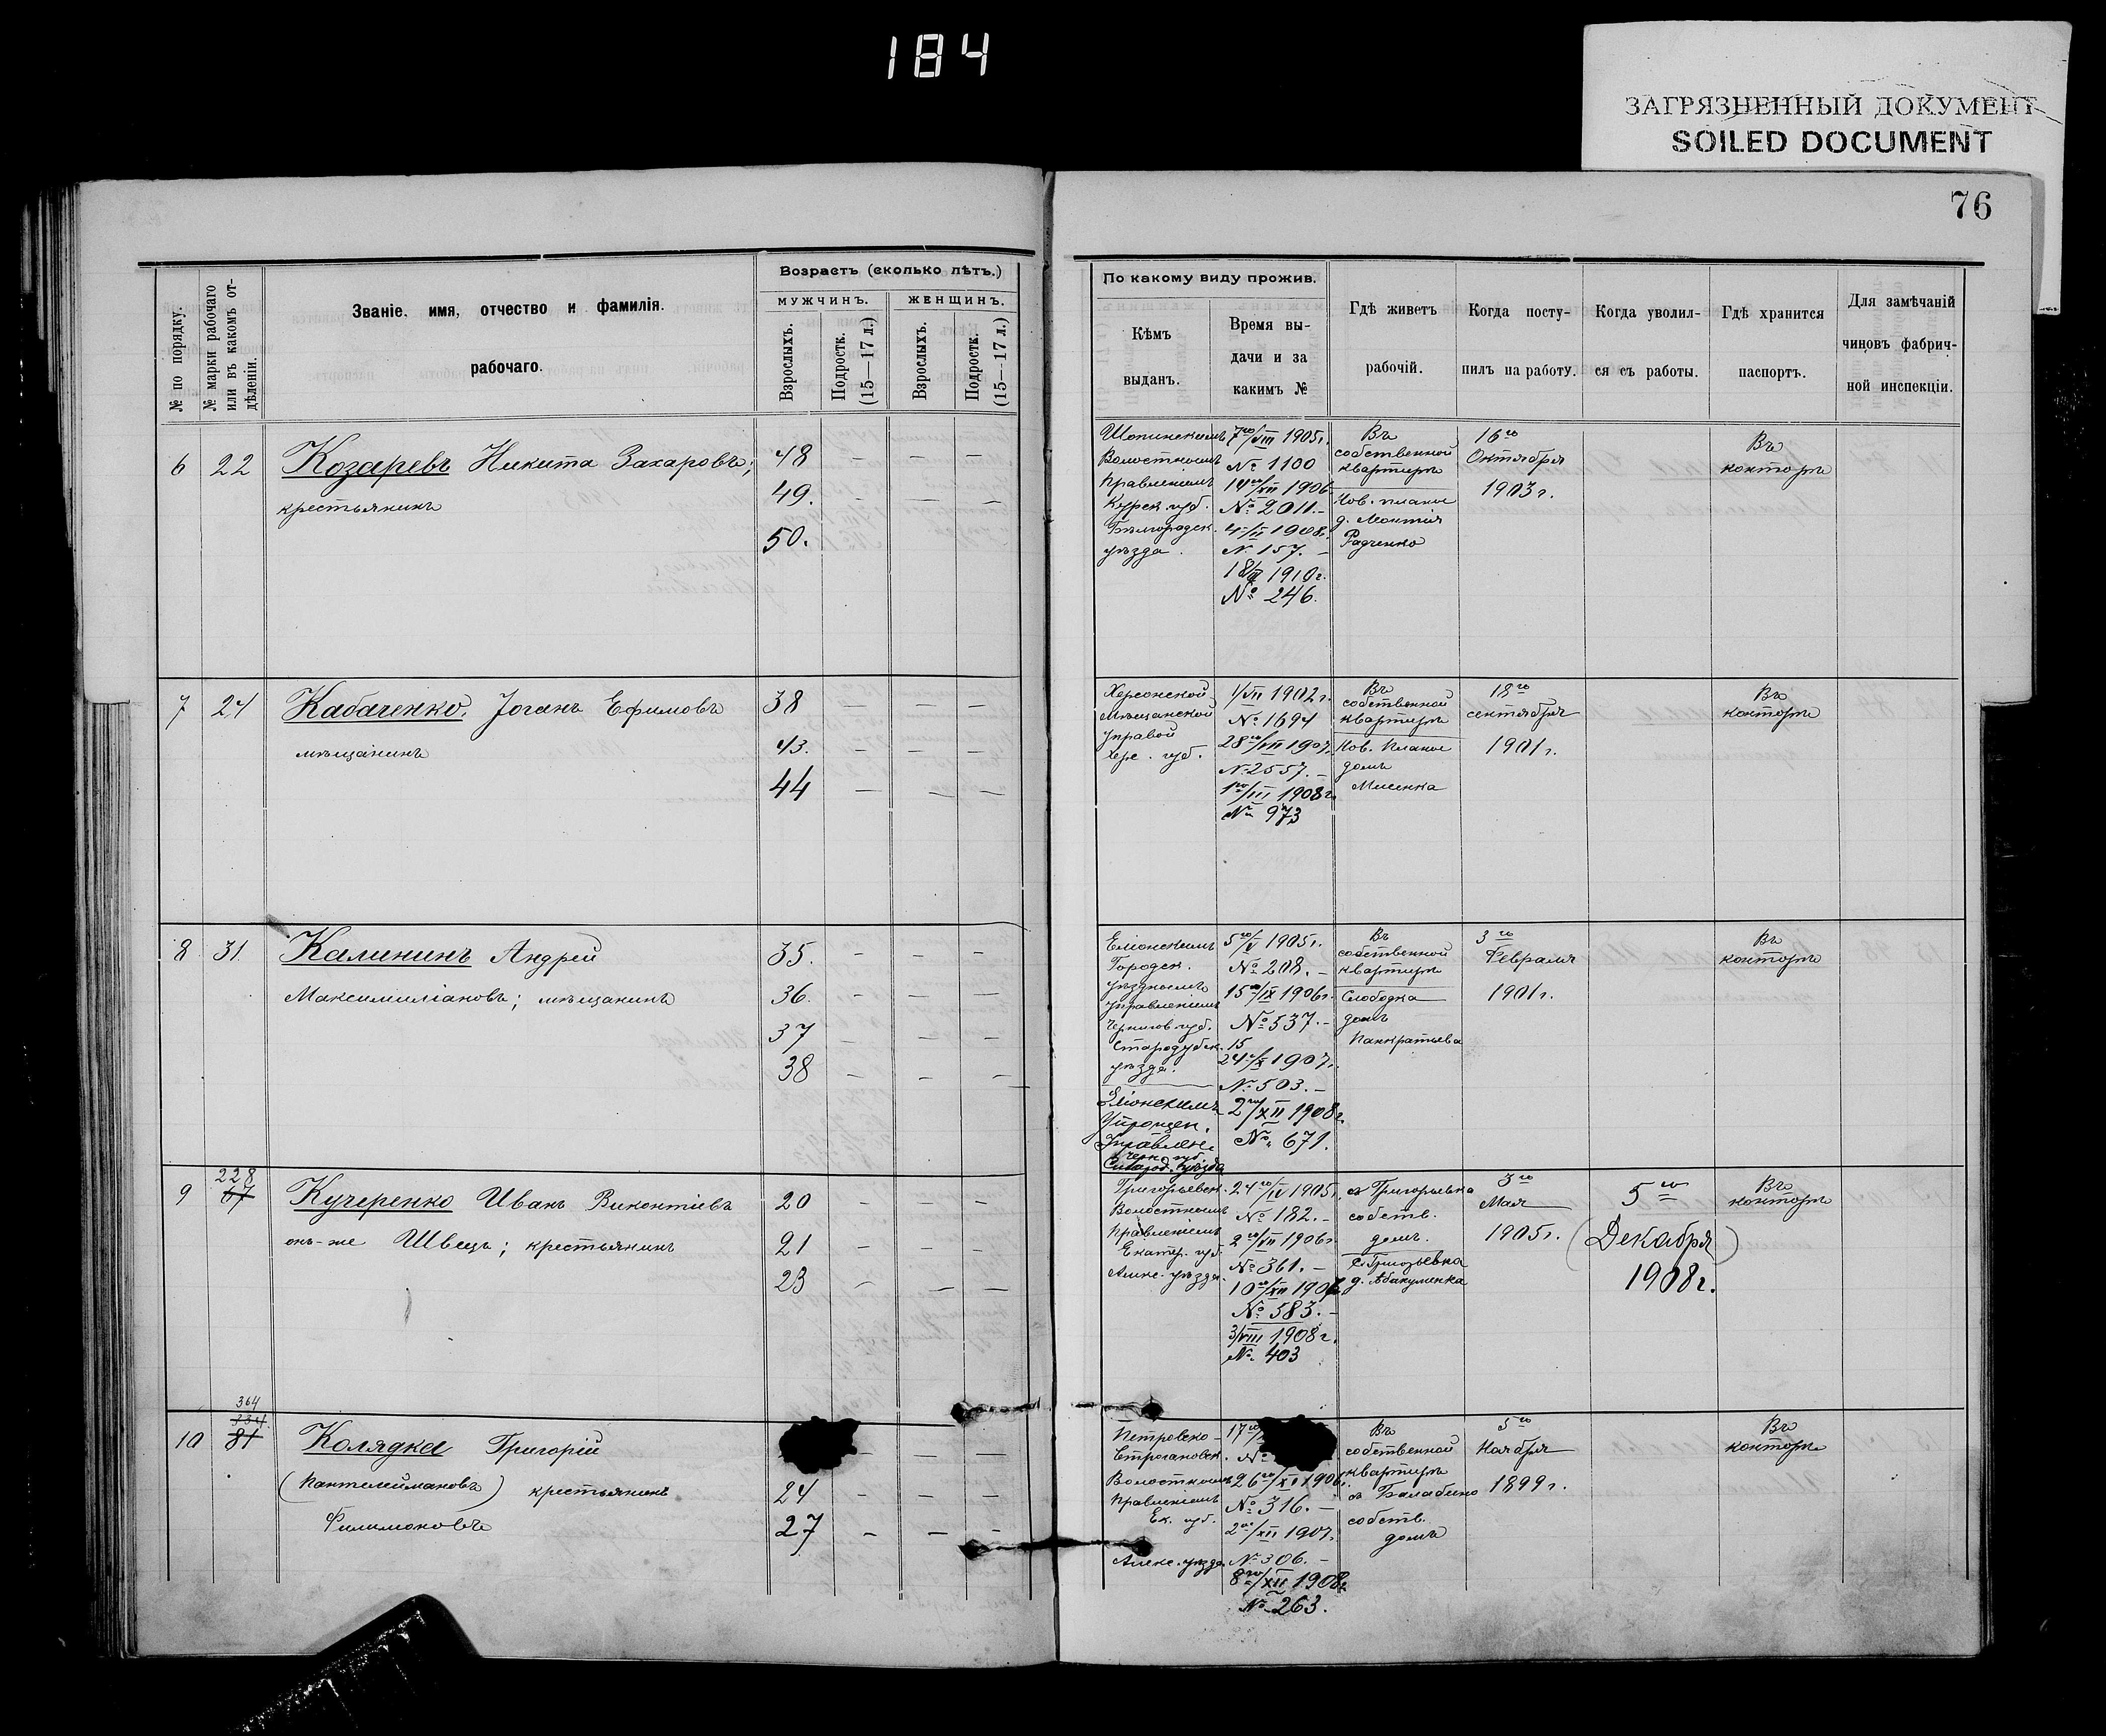 184
ЗАГРЯЗНЕННЫЙ ДОКУМЕНТ
SOILED DOCUMENT
76
№ по порядку.
№ марки рабочаго
или въ какомъ от-
дѣленіи.
Званіе, имя, отчество и фамилія.
рабочаго.
Возрастъ (сколько лѣтъ.)
МУЖЧИНЪ.
ЖЕНЩИНЪ.
Взрослыхъ.
Подростк.
(15—17 л.)
Взрослыхъ.
Подростк.
(15—17 л.)
По какому виду прожив.
Кѣмъ
выданъ.
Время вы-
дачи и за
какимъ №
Гдѣ живетъ
рабочій.
Когда посту-
пилъ на работу.
Когда уволил-
ся съ работы.
Гдѣ хранится
паспортъ.
Для замѣчаній
чиновъ фабрич-
ной инспекціи.
6 22 Козаревъ Никита Захаровъ;
крестьянинъ
48 — — —
49. — — —
50.
Волостнымъ
Правленіемъ
Курск. губ.
Бѣлгородск.
уѣзда.
7го/VIII 1905г.
№ 1100
14го/XII 1906
№ 2011.—
4/II 1908г.
№ 157.—
1910г.
№ 246.
Въ
собственной
квартирѣ
Нов. планъ
д.
Радченко
16го
Октября
1903г.
Въ
конторѣ
7 24 Кабаченко, Іоганъ Ефимовъ
мѣщанинъ
38 — — —
43. — — —
44 — — —
Херсонской
Мѣщанской
Управой
Хер. губ.
1/VII 1902г.
№ 1694
28го/VII 1907.
№ 2557.—
1го/III 1908г.
№ 973
Въ
собственной
квартирѣ
Нов. планъ
домъ
18го
сентября
1901г.
Въ
конторѣ
8 31 Калининъ Андрей
Максимиліановъ; мѣщанинъ
35. — — —
36. — — —
37 — — —
38 — — —
Еліонскимъ
Городск.
Управленіемъ
Чернигов губ.
Стародубск.
уѣзда.
Еліонскимъ
Упрощен.
Управлен.
Черн. губ.
Старод. уѣзда
5го/V 1905г.
№ 208.—
15го/IX 1906г.
№ 537.—
15
24/X 1907.
№ 503.—
2го/XII 1908г.
№ 671.
Въ
собственной
квартирѣ
Слободка
домъ
Панкратьева
3го
Февраля
1901г.
Въ
конторѣ
9 228
67
Кучеренко Иванъ Викентіевъ
онъ-же Швецъ; крестьянинъ
20 — — —
21 — — —
23 — — —
Григорьевск.
Волостнымъ
Правленіемъ
Екатер. губ.
Алекс. уѣзда
24го/IV 1905г.
№ 182.—
2го/VII 1906г.
№ 361.—
10го/XII 190
№ 583.—
3/VIII 1908г.
№ 403
с. Григорьевка
собств.
домъ.
с. Григорьевка
д. Абакуменка
3го
Мая
1905г.
5го
(Декабря)
1908г.
Въ
конторѣ
10 364
334
81
Колядка Григорій
(Пантелеймановъ) крестьянинъ
Филимоновъ
— — —
24 — — —
27 — — —
Петровско-
Строгановск.
Волостнымъ
Правленіемъ
Ек. губ.
Алекс. уѣзда
17го
№
26го/XI 1906г.
№ 316.—
2го/XII 1907.
№ 306.—
8го/XII 1908г.
№ 263.
Въ
собственной
квартирѣ
с. Балабино
собств.
домъ
5го
Ноября
1899г.
Въ
конторѣ